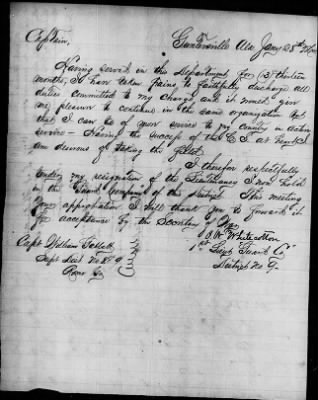 Captain, Guntersville Ala Jany 25th 186
Having served in this Department for (13) thirteen
months, & have taken pains to faithfully discharge all
duties committed to my charge and it would give
me pleasure to continue in the same organization but
that I can be of more service to my Country in active
service - Having the success of the C.S. at heart
am desirous of taking the field.
I therefor respectfully
tender my resignation of the Lieutenancy I now hold
in the Guard company of the District. This meeting
your approbation I will thank you to forward it
for acceptance by the Secretary of War
Capt William
Supt Dist No 9
O. W. Whitecotton
1st Lieut Guard Co
District No 9.